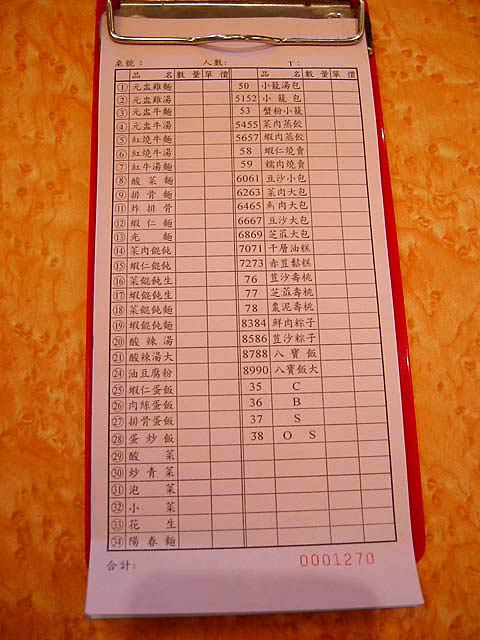 桌號： 人數： T：
品名 數量 單價 品名 數量 單價
① 元盅雞麵 50 小籠湯包
② 元盅雞湯 5152 小籠包
③ 元盅牛麵 53 蟹粉小籠
④ 元盅牛湯 5455 菜肉蒸餃
⑤ 紅燒牛麵 5657 蝦肉蒸餃
⑥ 紅燒牛湯 58 蝦仁燒賣
⑦ 紅牛湯麵 59 糯肉燒賣
⑧ 酸菜麵 6061 豆沙小包
⑨ 排骨麵 6263 菜肉大包
⑪ 炸排骨 6465 鮮肉大包
⑫ 蝦仁麵 6667 豆沙大包
⑬ 光麵 6869 芝蔴大包
⑭ 菜肉餛飩 7071 千層油糕
⑮ 蝦仁餛飩 7273 赤豆鬆糕
⑯ 菜餛飩生 76 荳沙壽桃
⑰ 蝦餛飩生 77 芝蔴壽桃
⑱ 菜餛飩麵 78 棗泥壽桃
⑲ 蝦餛飩麵 8384 鮮肉粽子
⑳ 酸辣湯 8586 荳沙粽子
㉑ 酸辣湯大 8788 八寶飯
㉔ 油豆腐粉 8990 八寶飯大
㉕ 蝦仁蛋飯 35 C
㉖ 肉絲蛋飯 36 B
㉗ 排骨蛋飯 37 S
㉘ 蛋炒飯 38 O S
㉙ 酸菜
㉚ 炒青菜
㉛ 泡菜
㉜ 小菜
㉝ 花生
㉞ 陽春麵
合計： 0001270